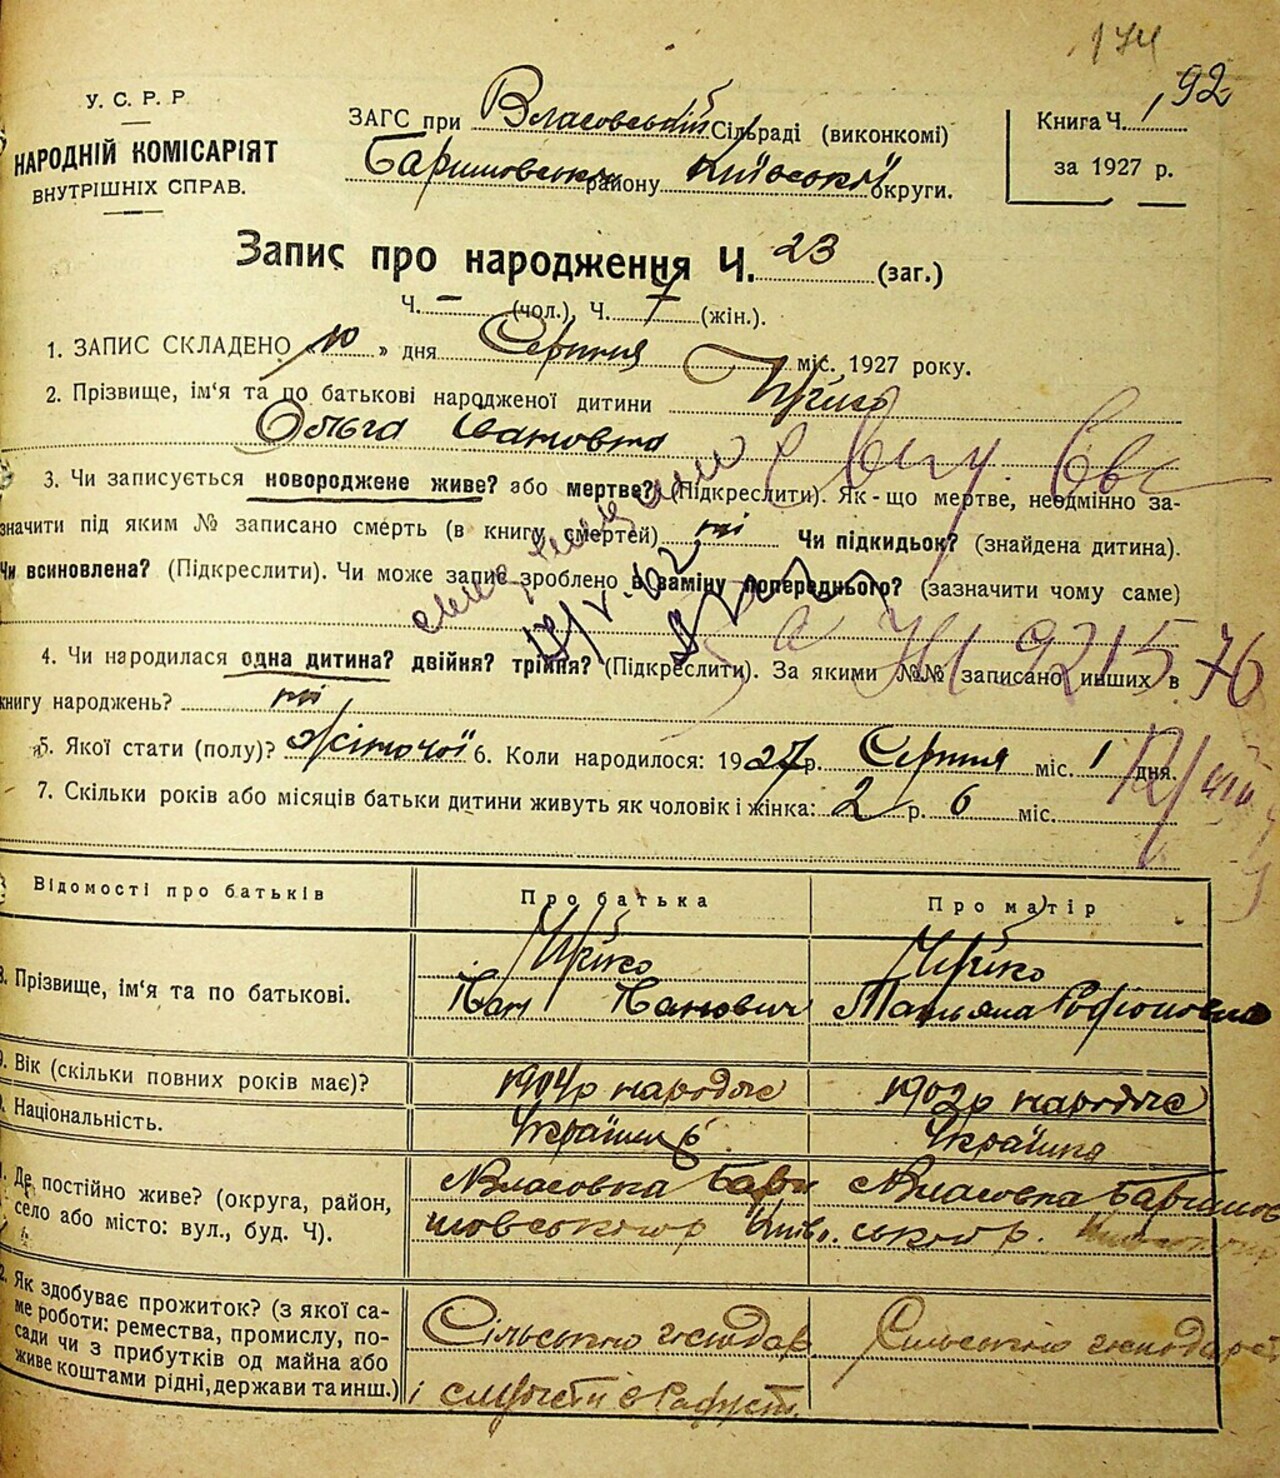 174
192
У. С. Р. Р.
НАРОДНІЙ КОМІСАРІЯТ
ВНУТРІШНІХ СПРАВ.
ЗАГС при Власовській Сільраді (виконкомі)
Баришовськ району Київської округи.
Книга Ч.
за 1927 р.
Запис про народження Ч. 23 (заг.)
Ч. – (чол.), Ч. 7 (жін.).
1. ЗАПИС СКЛАДЕНО „10" дня Серпня міс. 1927 року.
2. Прізвище, ім'я та по батькові народженої дитини
Ольга Івановна
3. Чи записується новороджене живе? або мертве? (Підкреслити). Як-що мертве, неодмінно за-
значити під яким № записано смерть (в книгу смертей) ні Чи підкидьок? (знайдена дитина).
Чи всиновлена? (Підкреслити). Чи може запис зроблено в заміну попереднього? (зазначити чому саме)
4. Чи народилася одна дитина? двійня? трійня? (Підкреслити). За якими №№ записано инших в
книгу народжень? ні
5. Якої стати (полу)? жіночої 6. Коли народилося: 1927 р. Серпня міс. 1 дня.
7. Скільки років або місяців батьки дитини живуть як чоловік і жінка: 2 р. 6 міс.
Відомості про батьків Про батька Про матір
8. Прізвище, ім'я та по батькові.
Іван Іванович Татьяна Родіоновна
9. Вік (скільки повних років має)? 1904 р народже 1902 р народже
Національність. Українець Українка
Де постійно живе? (округа, район,
село або місто: вул., буд. Ч).
Власовка Бари
шовського р Київ.
Власовка Баришов
ського р.
Як здобуває прожиток? (з якої са-
ме роботи: ремества, промислу, по-
сади чи з прибутків од майна або
живе коштами рідні, держави та инш.)
Сільськно господар.
Сільськно господарст